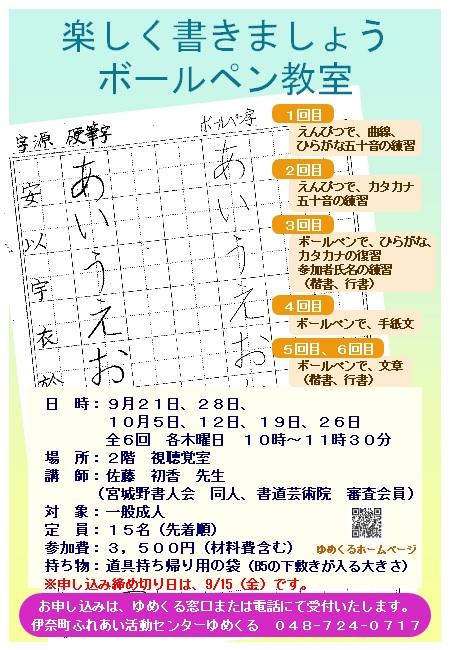 楽しく書きましょう
ボールペン教室
字源 硬筆字 ボールペン字
安 あ あ
以 い い
宇 う う
衣 え え
於 お お
1回目
えんぴつで、曲線、
ひらがな五十音の練習
2回目
えんぴつで、カタカナ
五十音の練習
3回目
ボールペンで、ひらがな、
カタカナの復習
参加者氏名の練習
（楷書、行書）
4回目
ボールペンで、手紙文
5回目、6回目
ボールペンで、文章
（楷書、行書）
日　時：９月２１日、２８日、
１０月５日、１２日、１９日、２６日
全６回　各木曜日　１０時～１１時３０分
場　所：２階　視聴覚室
講　師：佐藤　初香　先生
（宮城野書人会　同人、書道芸術院　審査会員）
対　象：一般成人
定　員：１５名（先着順）
参加費：３，５００円（材料費含む）
ゆめくるホームページ
持ち物：道具持ち帰り用の袋（B5の下敷きが入る大きさ）
※申し込み締め切り日は、9/15（金）です。
お申し込みは、ゆめくる窓口または電話にて受付いたします。
伊奈町ふれあい活動センターゆめくる　０４８-７２４-０７１７